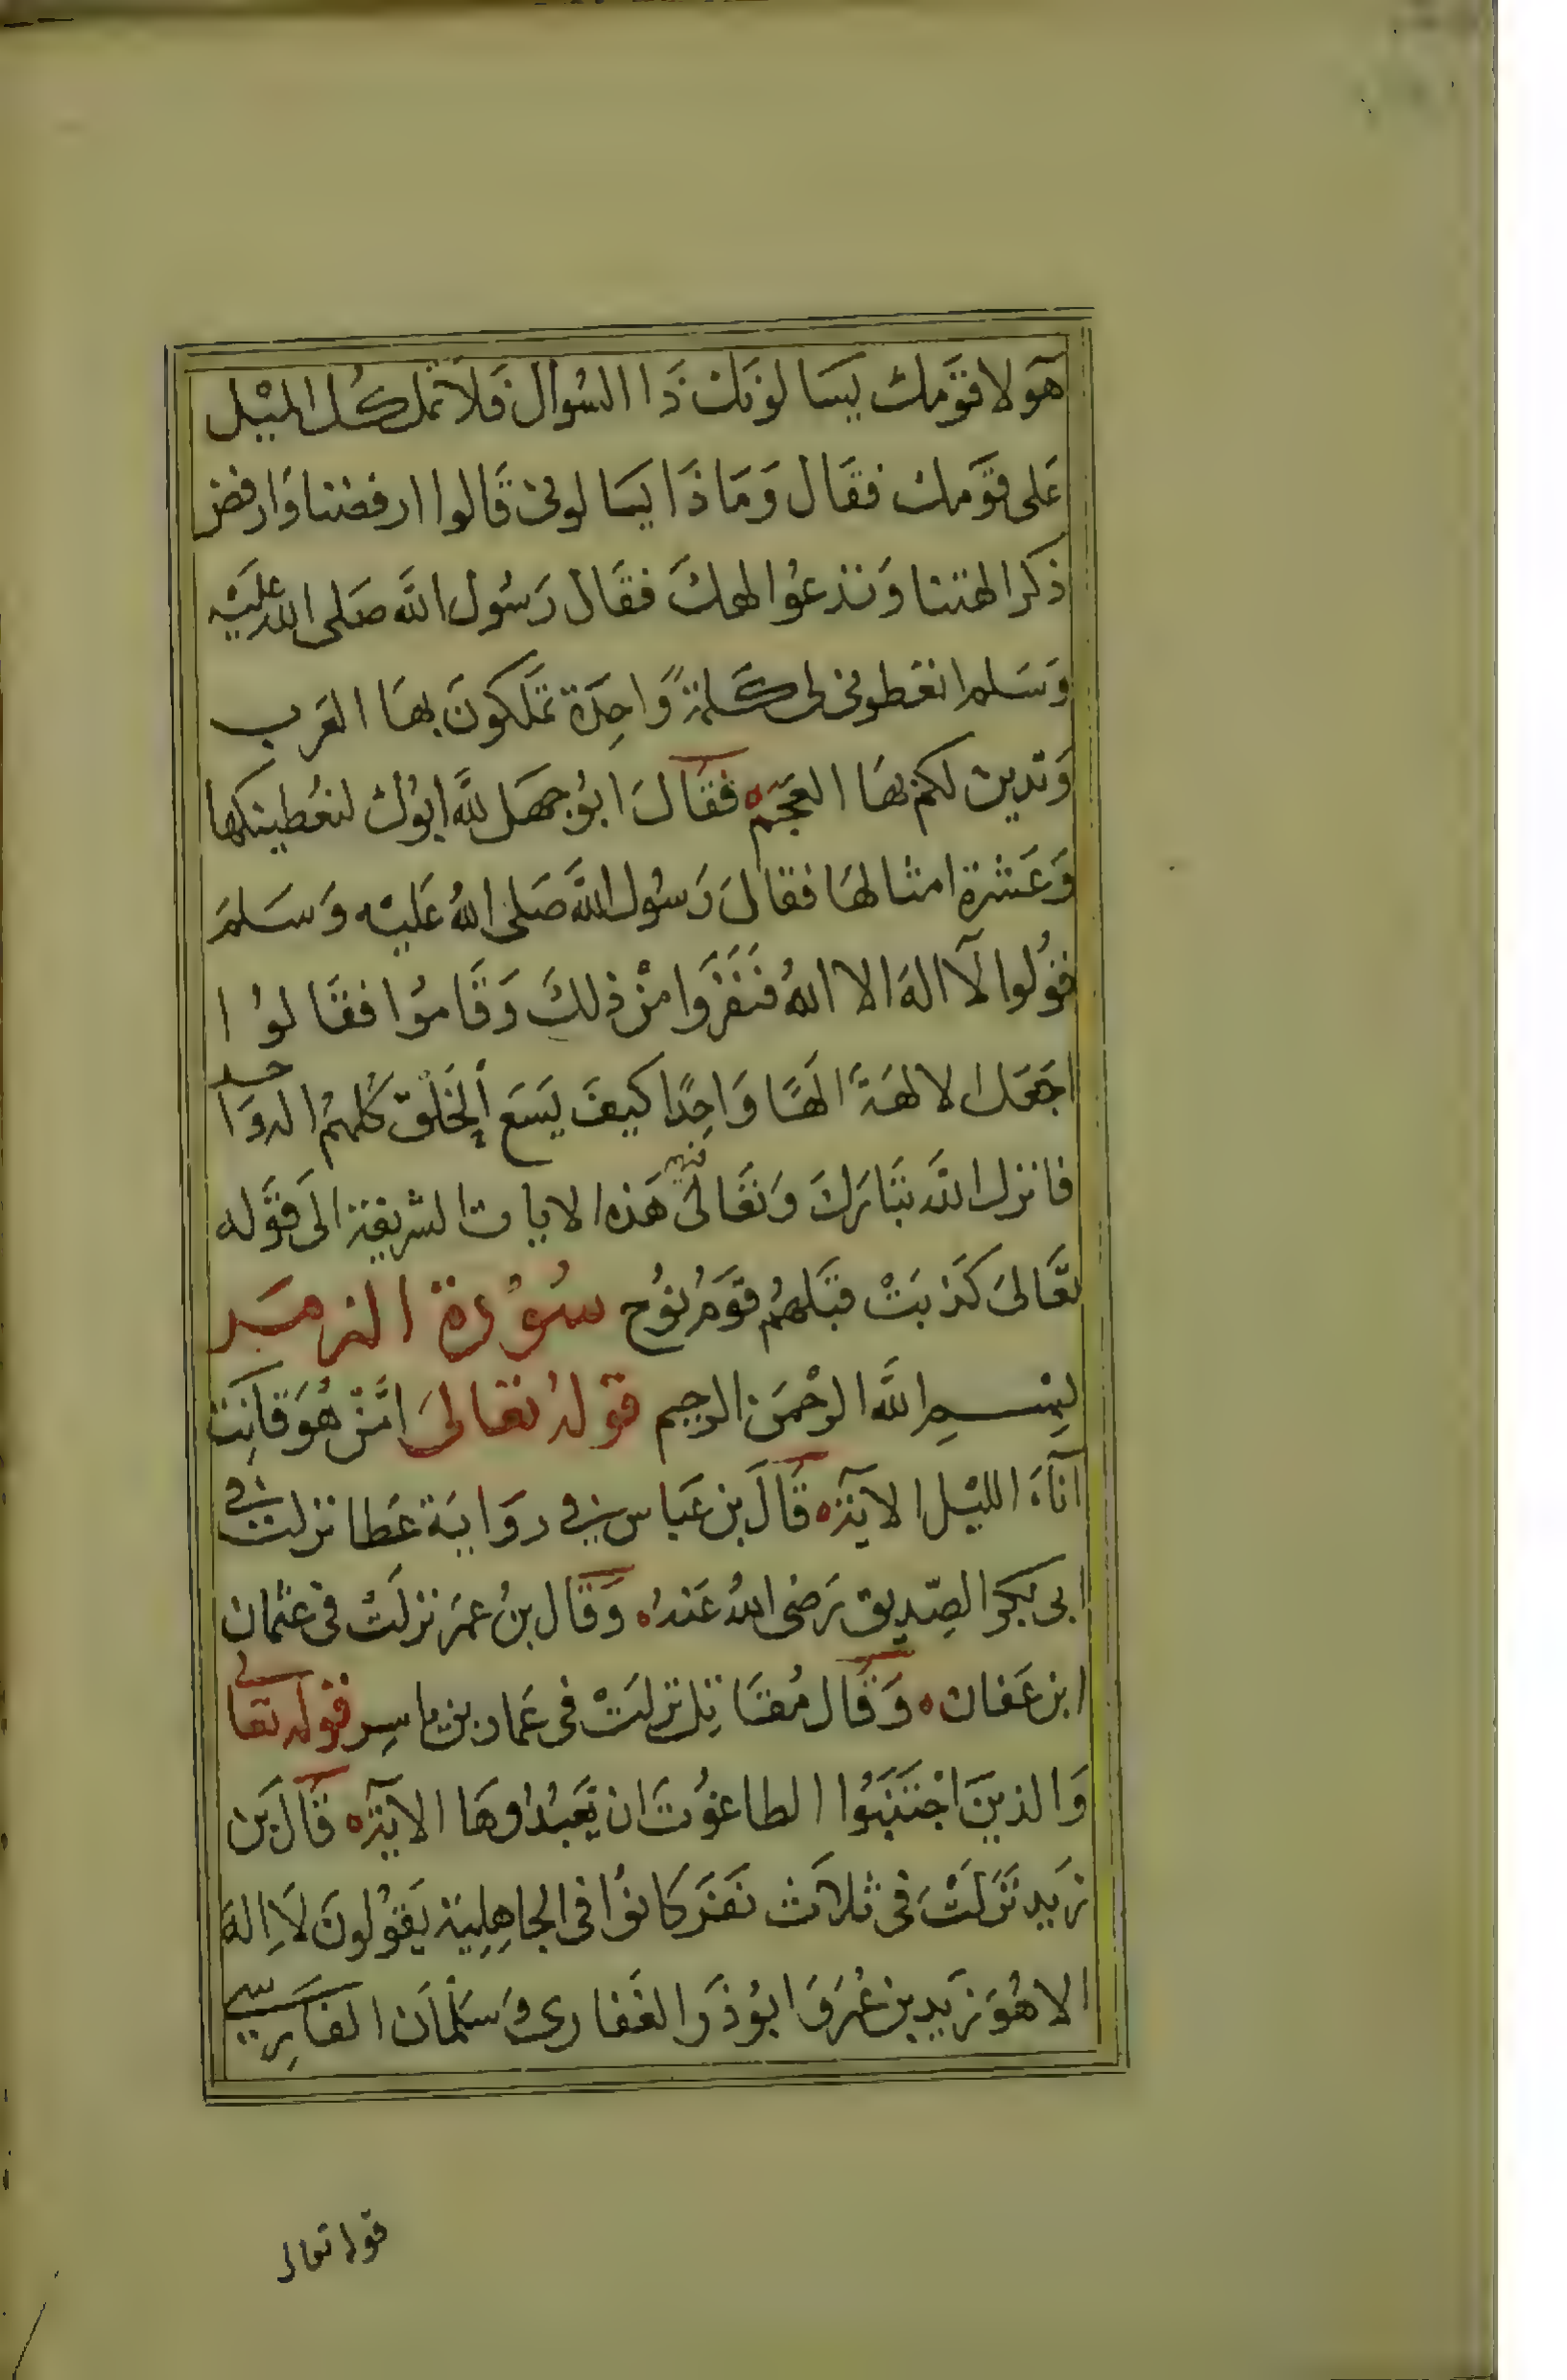 هولا قومك يسالونك ذا السوال فلا تمل كل الميل
على قومك فقال وماذا يسالوني قالوا ارفضنا وارفض
ذكر الهتنا ونذعوا لهك فقال رسول الله صلى الله عليه
وسلم اتعطوني لى كلمة واحدة تملكون بها العرب
وتدين لكم بها العجم ه فقال ابو جهل لله ابوك لنعطينكها
وعشرة امثالها فقال رسول الله صلى الله عليه وسلم
قولوا لا اله الا الله فنفروا من ذلك وقاموا فقالوا
اجعل الالهة الها واحدا كيف يسع الخلق كلهم اله واحد
فانزل الله تبارك وتعالى فيهم هذه الايات الشريفة الى قوله
تعالى كذبت قبلهم قوم نوح سورة الزمر
بسم الله الرحمن الرحيم قوله تعالى امن هو قانت
آناء الليل الاية ه قال بن عباس في رواية عطا نزلت في
ابى بكر الصديق رضى الله عنه ه وقال بن عمر نزلت في عثمان
ابن عفان ه وقال مقاتل نزلت في عمار بن ياسر قوله تعالى
والذين اجتنبوا الطاغوت ان يعبدوها الآية ه قال بن
زيد نزلت في ثلاث نفر كانوا في الجاهلية يقولون لا اله
الا هو زيد بن عمرو ابوذر الغفاري وسلمان الفارسي
قوله تعالى